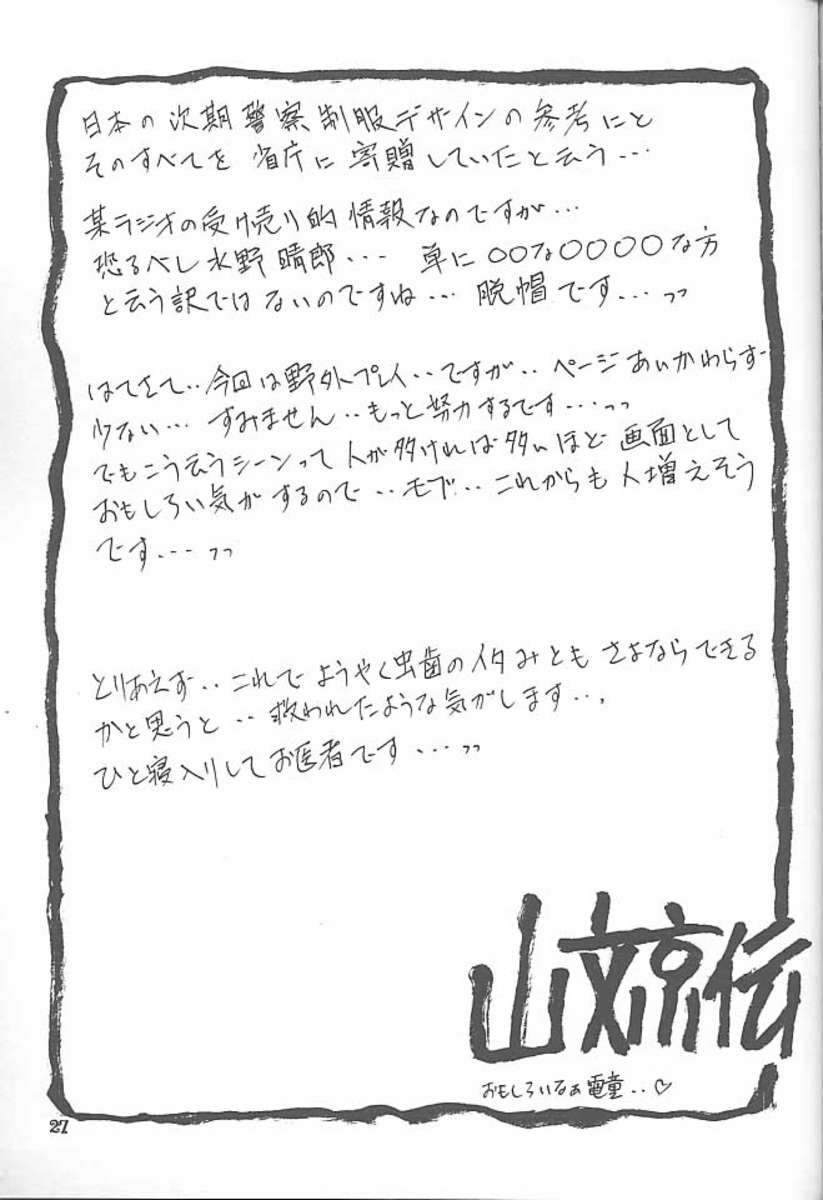 日本の次期警察制服デザインの参考にと
そのすべてを省庁に寄贈していたと云う・・・
某ラジオの受け売り的情報なのですが・・・
恐るべし水野晴郎・・・ 単に○○な○○○○な方
と云う訳ではないのですね・・・ 脱帽です・・・ッッ
はてさて・・今回は野外プレイ・・ですが・・ページあいかわらず
少ない・・・ すみません・・もっと努力するです・・・ッッ
でもこう云うシーンって人が多ければ多いほど画面として
おもしろい気がするので・・モブ・・これからも人増えそう
です・・・ッッ
とりあえず・・これでようやく虫歯のイタみともさよならできる
かと思うと・・救われたような気がします・・・
ひと寝入りしてお医者です・・・ッッ
山文京伝
おもしろいなぁ電童・・♡
27